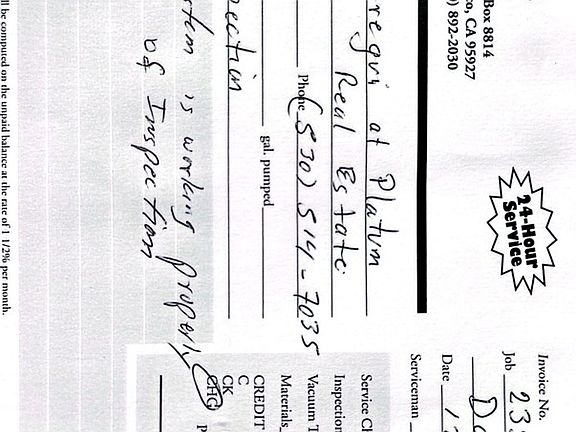 Box 8814
co, CA 95927
) 892-2030
24-Hour
Service
Invoice No. 23
Job
Date
Serviceman
regui at Platum
Real Estate
Phone (530) 514-7035
gal. pumped
ection
stem is working properly
of Inspection
Service Ch
Inspection
Vacuum T
Materials
CREDIT
C
CK
CHG
ll be computed on the unpaid balance at the rate of 1 1/2% per month.